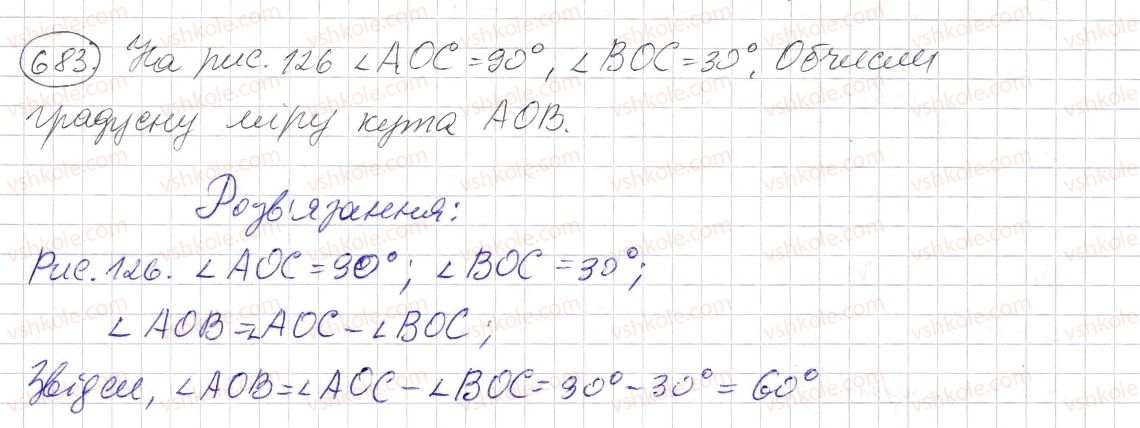 683. На рис. 126 ∠AOC = 90°, ∠BOC = 30°. Обчисли
градусну міру кута AOB.
Розв'язання:
Рис. 126. ∠AOC = 90°; ∠BOC = 30°;
∠AOB = ∠AOC - ∠BOC;
Звідси, ∠AOB = ∠AOC - ∠BOC = 90° - 30° = 60°